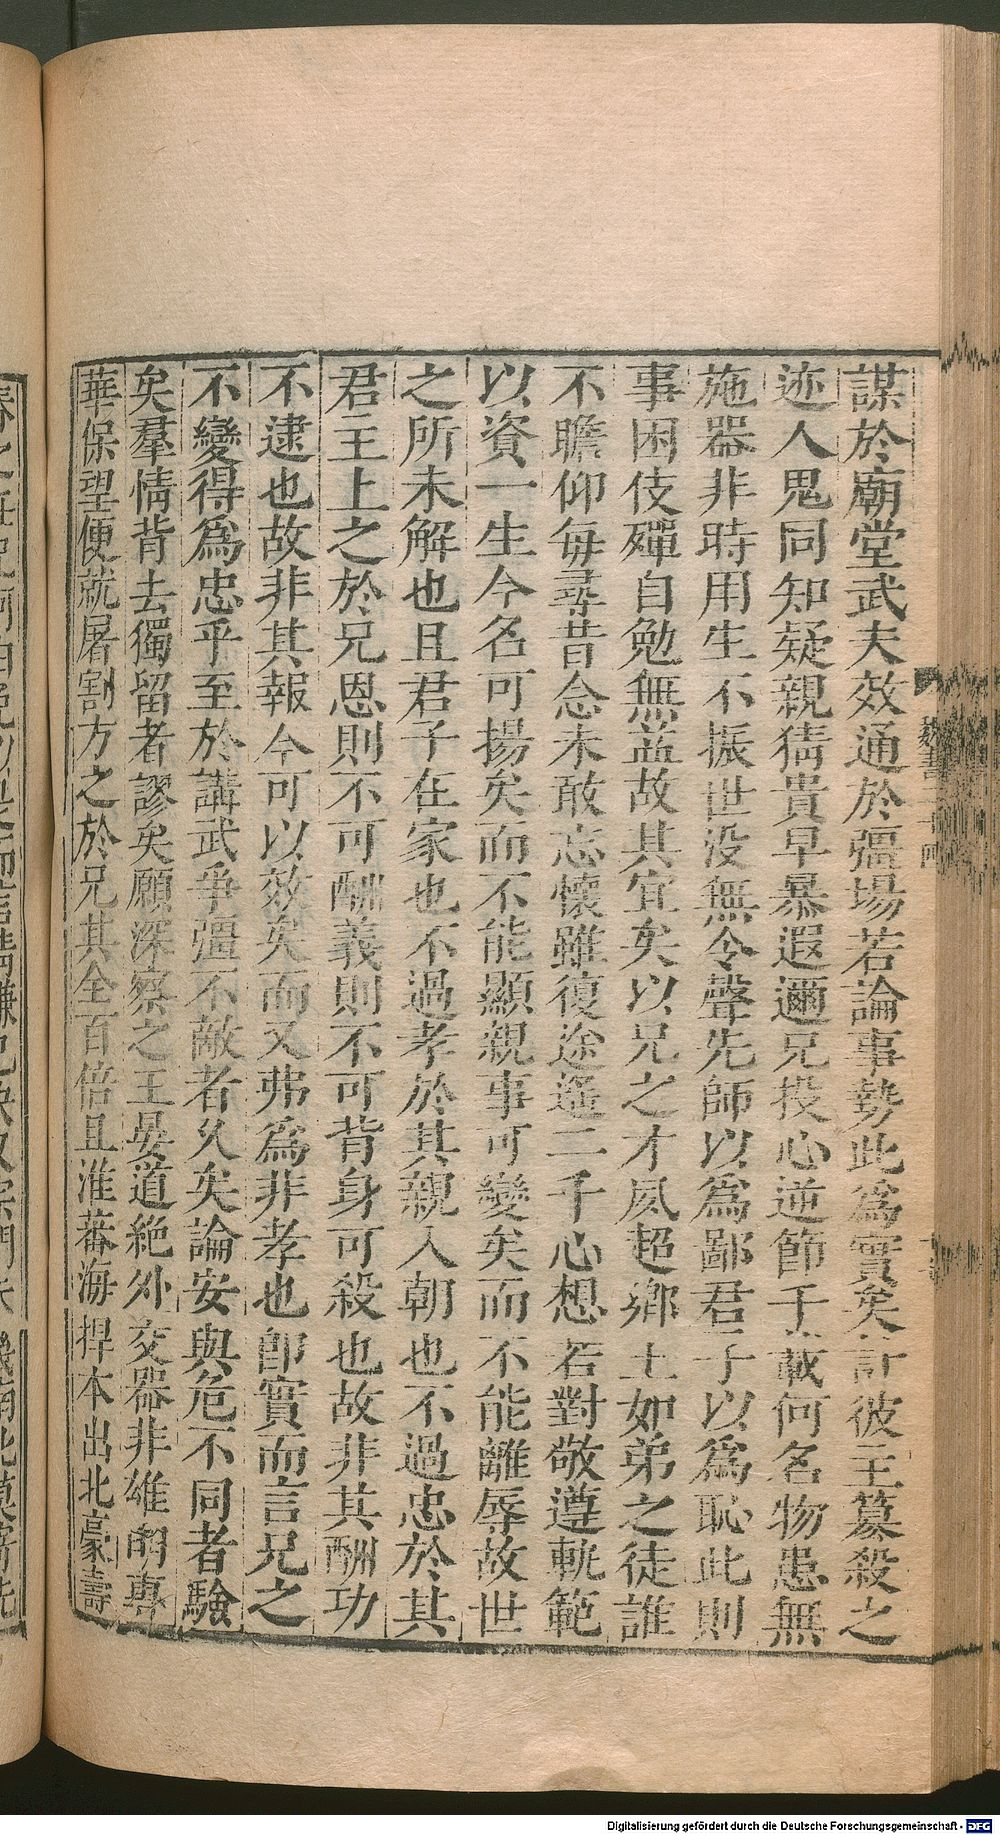 謀於廟堂武夫效通於彊場若論事勢此為實矣計彼主篡殺之
迹人鬼同知疑親猜貴早暴遐邇兄投心逆節千載何名物患無
施器非時用生不振世没無令聲先師以為鄙君子以為恥此則
事困伎殫自勉無益故其宜矣以兄之才夙超鄉土如弟之徒誰
不瞻仰每尋昔念未敢忘懷雖復途遥二千心想若對敬遵軌範
以資一生今名可揚矣而不能顯親事可變矣而不能離辱故世
之所未解也且君子在家也不過孝於其親入朝也不過忠於其
君王上之於兄恩則不可酬義則不可背身可殺也故非其酬功
不逮也故非其報今可以效矣而又弗為非孝也即實而言兄之
不變得為忠乎至於講武爭彊不敵者久矣論安與危不同者驗
矣羣情背去獨留者謬矣願深察之王晏道絶外交器非雄朗專
華保望便就屠割方之於兄其全百倍且淮蕃海捍本出北豪壽
魏書二十四
Digitalisierung gefördert durch die Deutsche Forschungsgemeinschaft - DFG